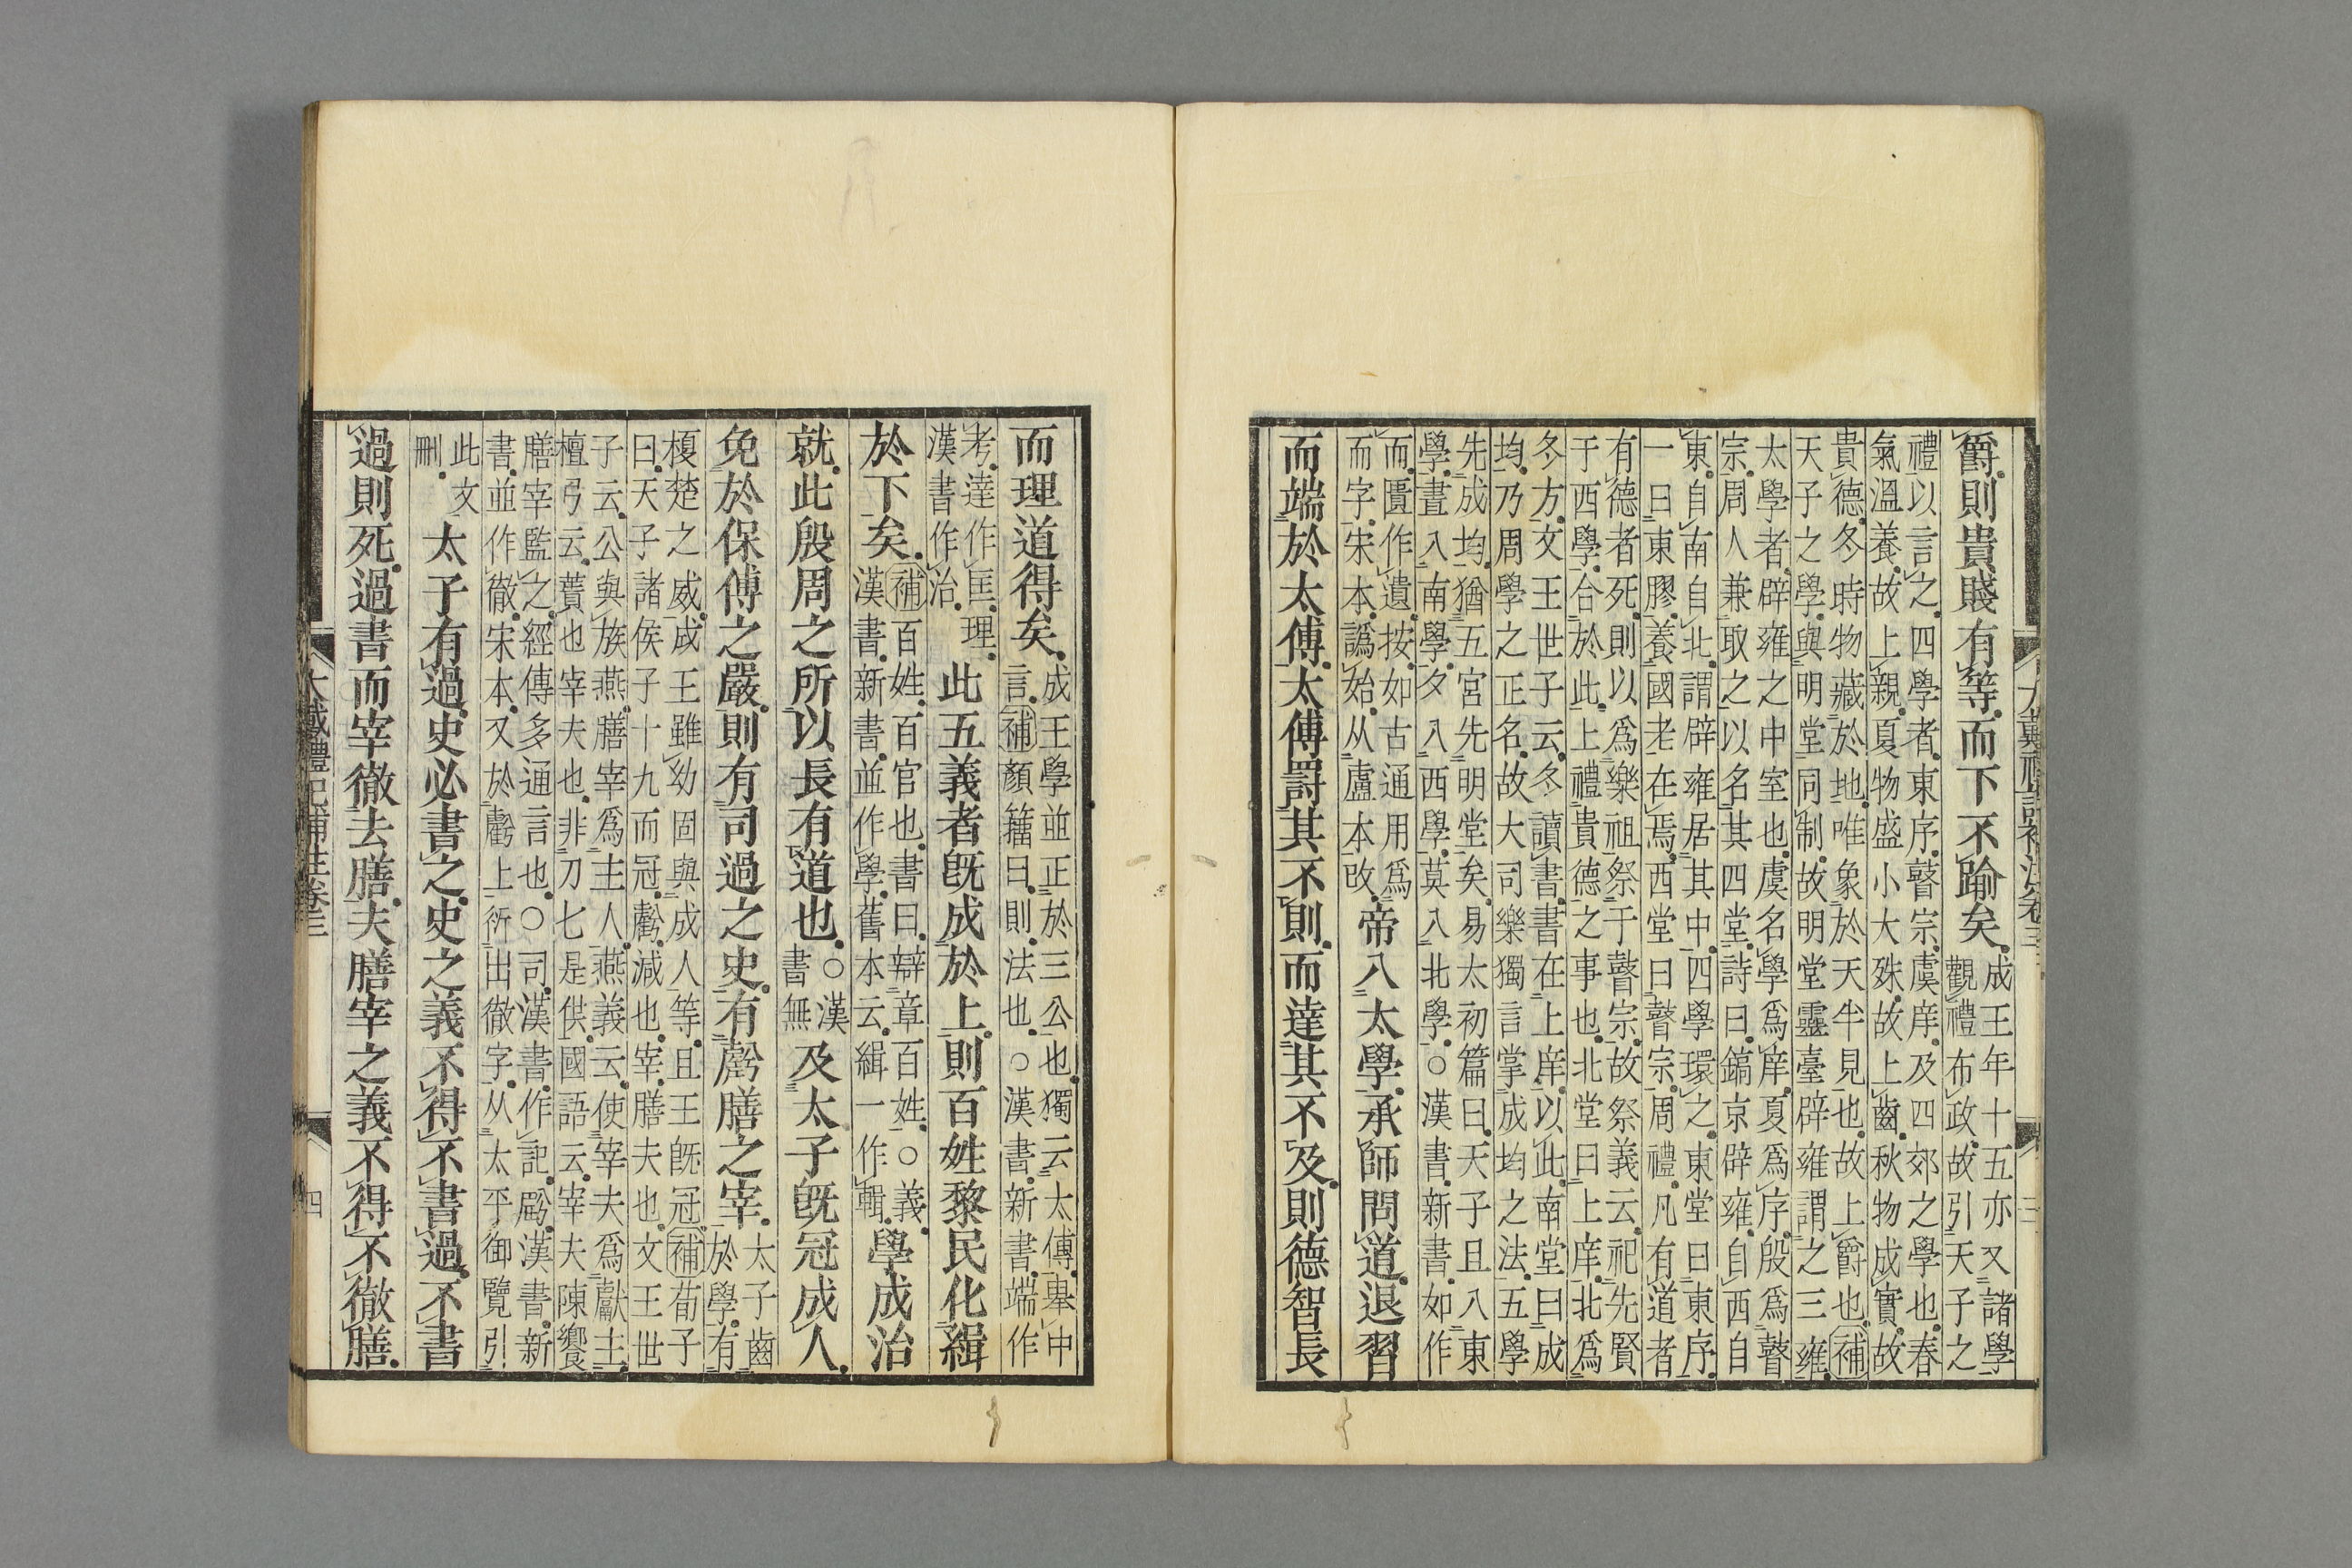 爵則貴賤有等而下不踰矣
成王年十五亦又諸學
觀禮布政故引天子之
禮以言之四學者東序瞽宗虞庠及四郊之學也春
氣溫養故上親夏物盛小大殊故上齒秋物成實故
貴德冬時物藏於地唯象於天半見也故上爵也補
天子之學與明堂同制故明堂靈臺辟雍謂之三雍
太學者辟雍之中室也虞名學爲庠夏爲序殷爲瞽
宗周人兼取之以名其四堂詩曰鎬京辟雍自西自
東自南自北謂辟雍居其中四學環之東堂曰東序
一曰東膠養國老在焉西堂曰瞽宗周禮凡有道者
有德者死則以爲樂祖祭于瞽宗故祭義云祀先賢
于西學合於此上禮貴德之事也北堂曰上庠北爲
冬方文王世子云冬讀書書在上庠以此南堂曰成
均乃周學之正名故大司樂獨言掌成均之法五學
先成均猶五宮先明堂矣易太初篇曰天子旦入東
學晝入南學夕入西學莫入北學○漢書新書如作
而匱作遺按如古通用爲
而字宋本譌始从盧本改
帝入太學承師問道退習
而端於太傅太傅罰其不則而達其不及則德智長
而理道得矣
成王學並正於三公也獨云太傅舉中
言補顏籒曰則法也○漢書新書端作
考達作匡理
漢書作治
此五義者旣成於上則百姓黎民化緝
於下矣
補百姓百官也書曰辯章百姓○義
漢書新書並作學舊本云緝一作輯
學成治
就此殷周之所以長有道也
○漢
書無
及太子旣冠成人
免於保傅之嚴則有司過之史有虧膳之宰
太子齒
於學有
榎楚之威成王雖幼固與成人等且王旣冠補荀子
曰天子諸侯子十九而冠虧減也宰膳夫也文王世
子云公與族燕膳宰爲主人燕義云使宰夫爲獻主
檀弓云蕢也宰夫也非刀七是供國語云宰夫陳饗
膳宰監之經傳多通言也○司漢書作記虧漢書新
書並作徹宋本又於虧上衍出徹字从太平御覽引
此文
刪
太子有過史必書之史之義不得不書過不書
過則死過書而宰徹去膳夫膳宰之義不得不徹膳
大戴禮記補注卷三
四